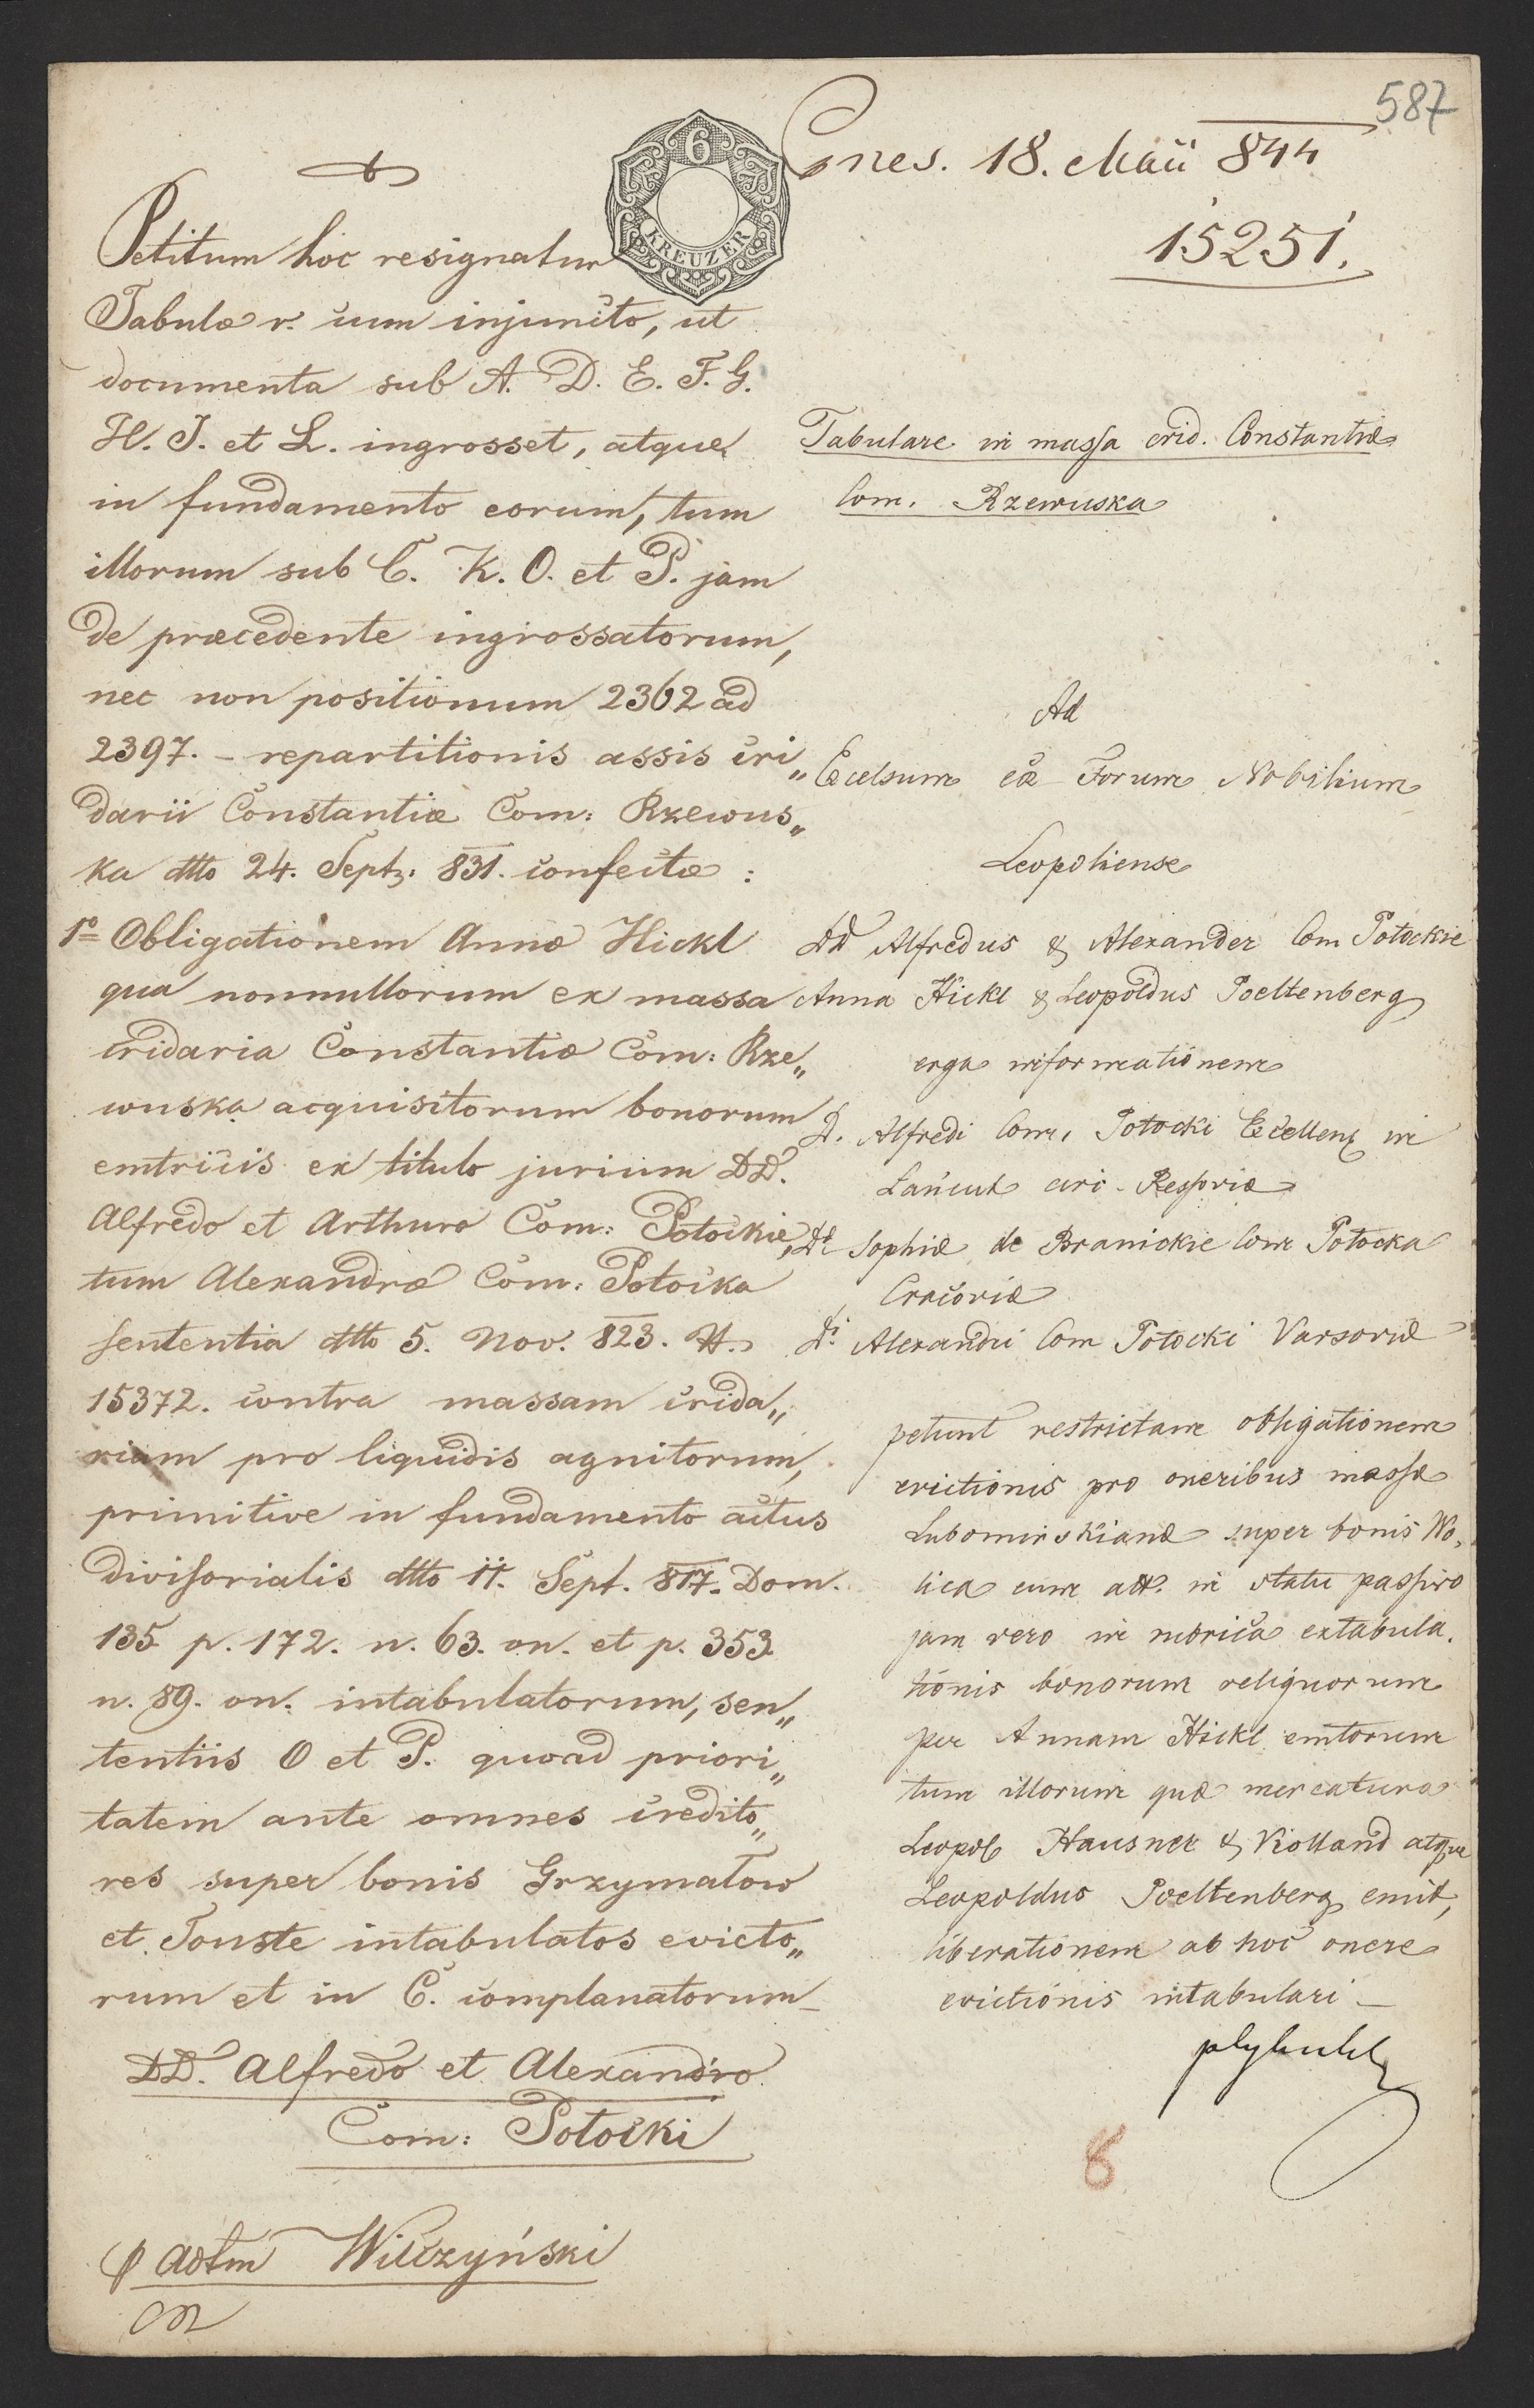 587
Pnes. 18. Maii 844
15251.
6
KREUZER
Petitum hoc resignatur
Tabulæ r. cum injuncto, ut
documenta sub A. D. E. F. G.
H. J. et L. ingrosset, atque
in fundamento eorum, tum
illorum sub C. K. O. et P. jam
de præcedente ingrossatorum,
nec non positionum 2362 ad
2397. – repartitionis assis cri„
darii Constantiæ Com: Rzewus„
ka dtto 24. Septb: 831. confectæ :
1º Obligationem Annæ Hickl
qua nonnullorum ex massa
cridaria Constantiæ Com: Rze„
wuska acquisitorum bonorum
emtricis ex titulo jurium DD.
Alfredo et Arthuro Com: Potockie,
tum Alexandræ Com: Potocka
sententia dtto 5. Nov. 823. N.
15372. contra massam crida„
riam pro liquidis agnitorum,
primitive in fundamento actus
divisorialis dtto 11. Sept. 817. Dom.
135 p. 172. n. 63. on. et p. 353.
n. 89. on. intabulatorum, sen„
tentiis O et P. quoad priori„
tatem ante omnes credito„
res super bonis Grzymałow
et Touste intabulatos evicto„
rum et in C. complanatorum –
DD. Alfredo et Alexandro
Com: Potocki
p adtm Wilczyński
Tabulare in massa crid. Constantiæ
Com. Rzewuska
Ad
Excelsum cæ Forum Nobilium
Leopoliense
DD Alfredus & Alexander Com Potockie
Anna Hickl & Leopoldus Poeltenberg
erga informationem
D. Alfredi Com. Potocki Excellenz in
Łańcut circ. Ressoviæ
Dæ Sophiæ de Branickie Com Potocka
Cracoviæ
Di Alexandri Com Potocki Varsoviæ
petunt restrictam obligationem
evictionis pro oneribus massæ
Lubomirskianæ super bonis Wo,
lica cum att. in statu passivo
jam vero in rubrica extabula.
tionis bonorum reliquorum
per Annam Hickl emtorum
tum illorum quæ mercatura
Leopol Hausner & Violland atque
Leopoldus Poeltenberg emit,
liberationem ab hoc onere
evictionis intabulari –
8